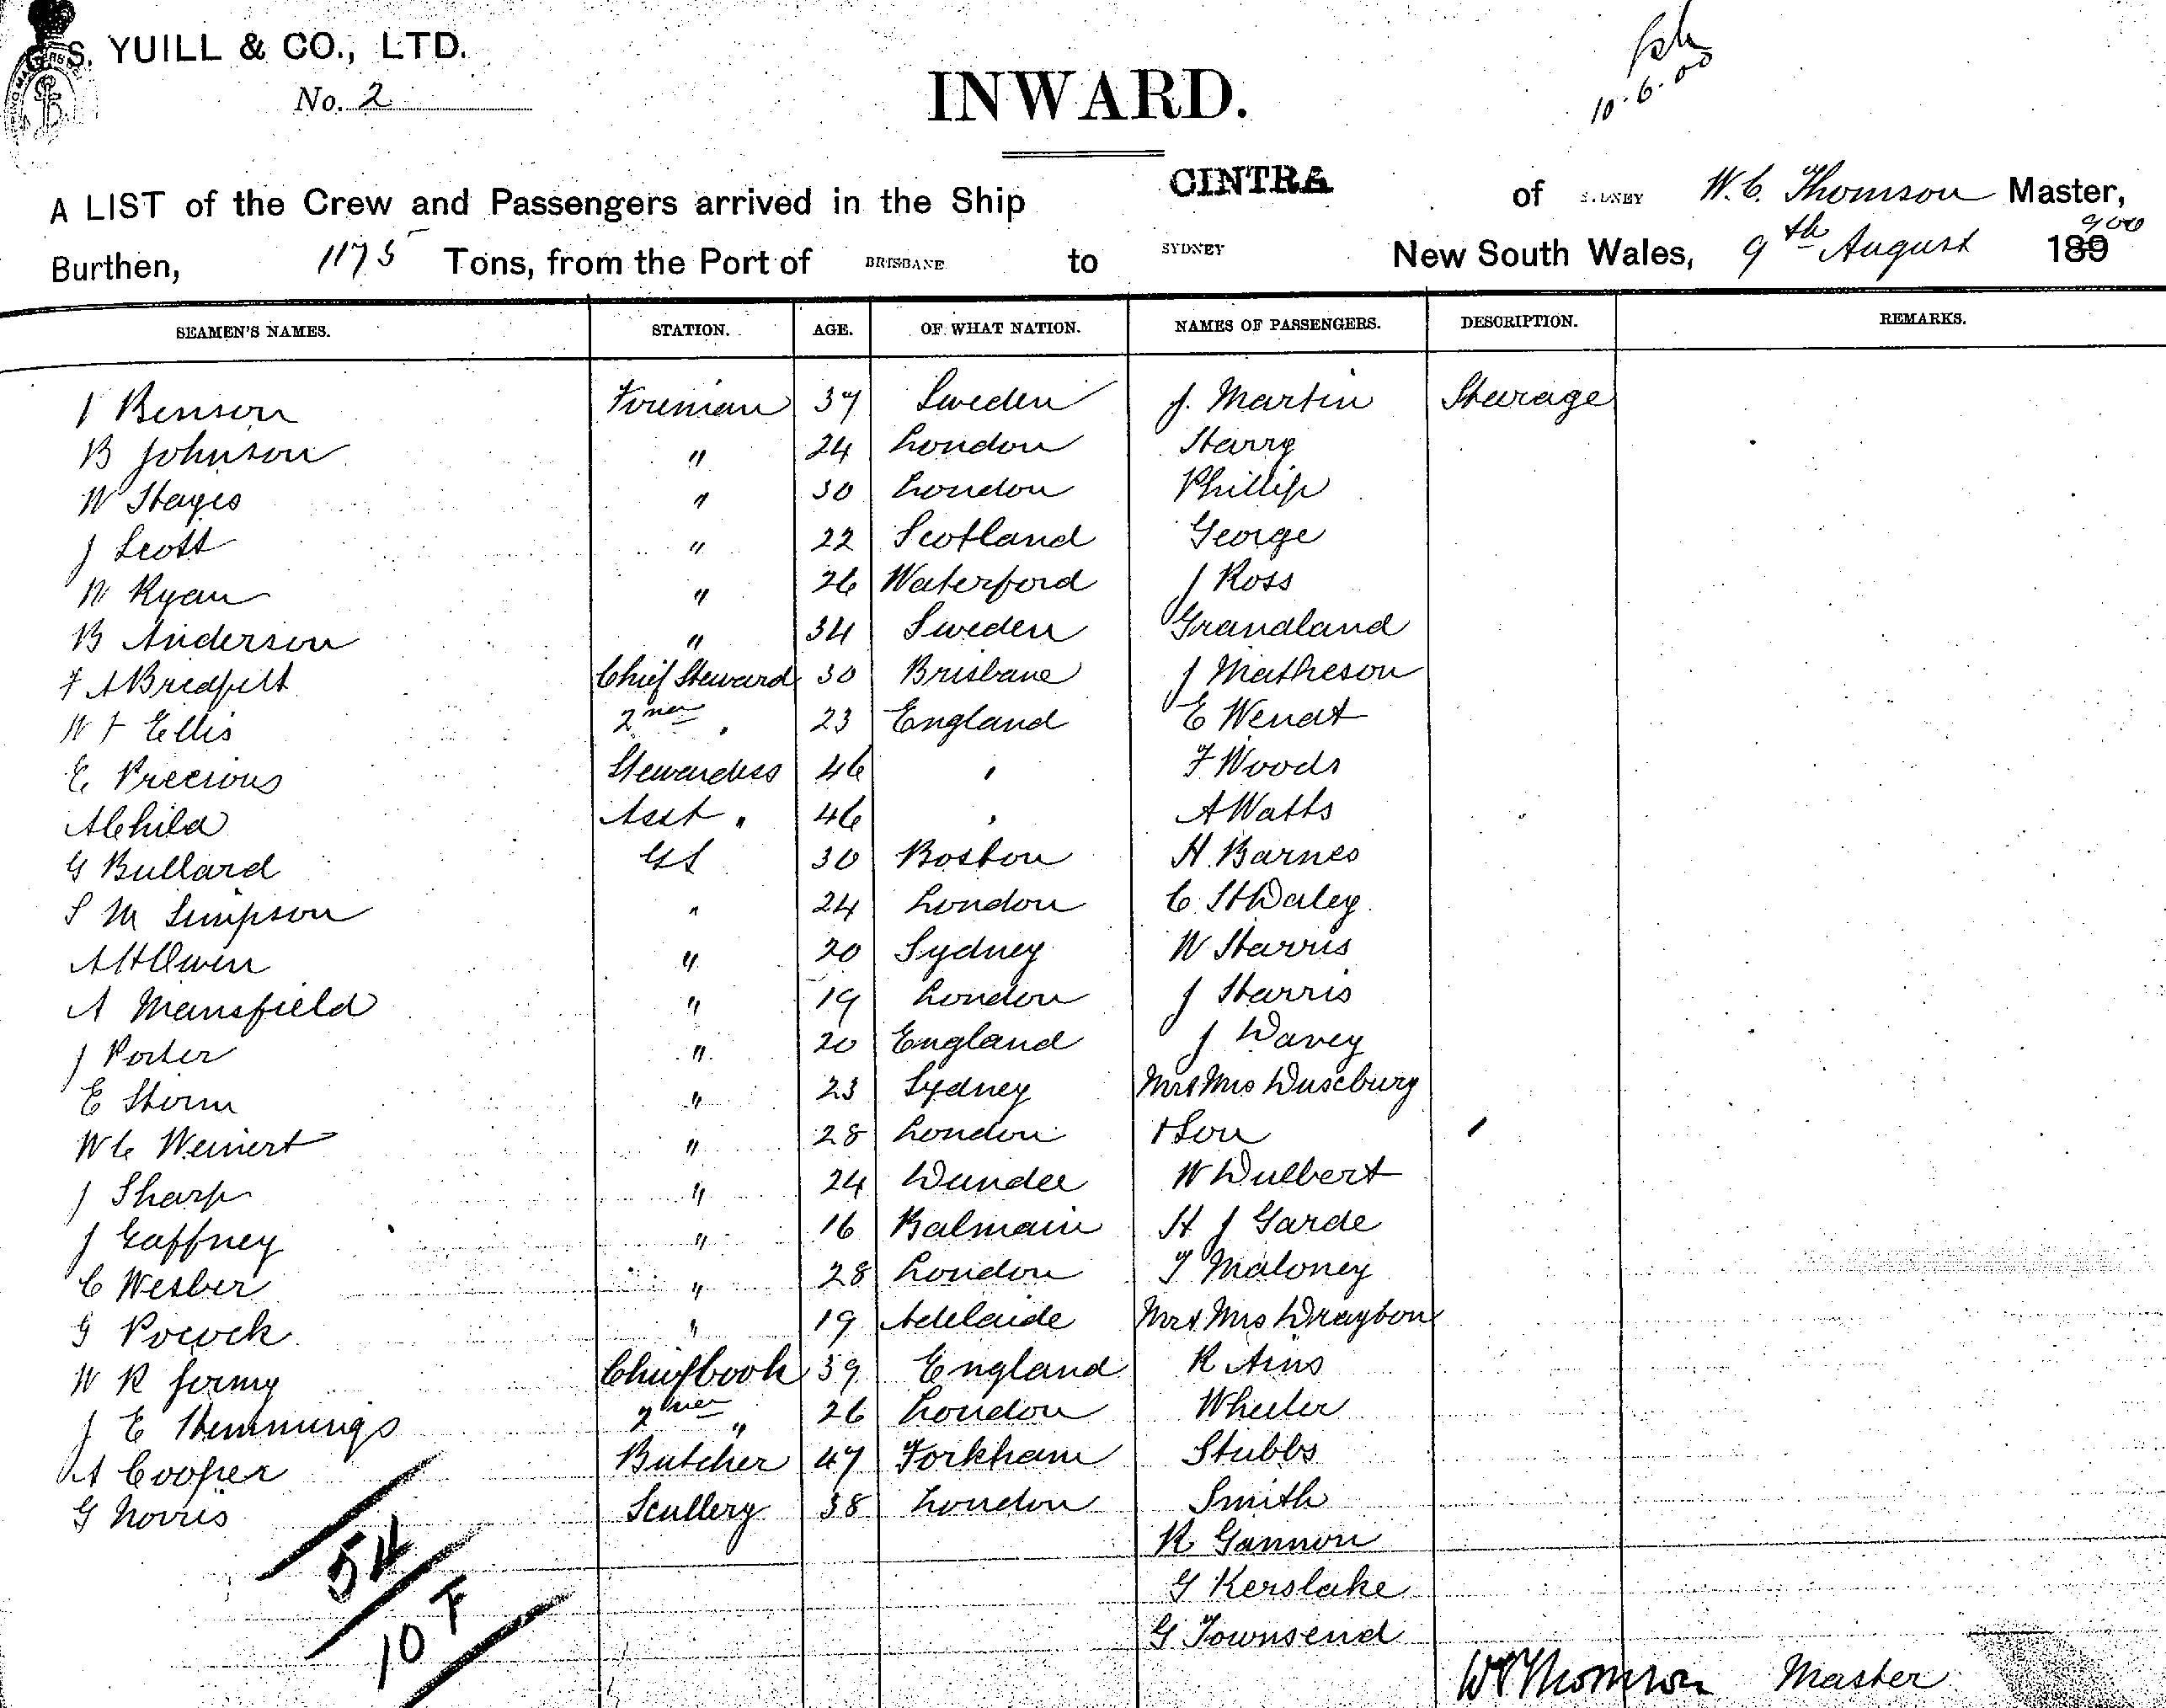 S. YUILL & CO., LTD.
No. 2
INWARD.
10.6.00
A LIST of the Crew and Passengers arrived in the Ship CINTRA of SYDNEY W. C. Thomson Master,
Burthen, 1175 Tons, from the Port of BRISBANE to SYDNEY New South Wales, 9th August 189 900
SEAMEN'S NAMES. STATION. AGE. OF WHAT NATION. NAMES OF PASSENGERS. DESCRIPTION. REMARKS.
J Benson Fireman 37 Sweden J. Martin Steerage
B Johnson " 24 London Harry
W Hayes " 30 London Phillip
J Scott " 22 Scotland George
W Ryan " 26 Waterford J Ross
B Anderson " 34 Sweden Grandland
F A Bredfelt Chief Steward 30 Brisbane J Matheson
W F Ellis 2nd " 23 England E Wendt
E Precious Stewardess 46 " F Woods
A Child Asst " 46 " A Watts
G Bullard GS 30 Boston H. Barnes
S M Simpson " 24 London C. H Daley
A H Owen " 20 Sydney W Harris
A Mansfield " 19 London J Harris
J Porter " 20 England J Davey
E Storm " 23 Sydney Mr & Mrs Duseburg
W C Weinert " 28 London & Son
J Sharp " 24 Dundee W Dulbert
J Gaffney " 16 Balmain H J Garde
C Wesber " 28 London T Maloney
G Pocock " 19 Adelaide Mr & Mrs Draybon
W R Jermy Chief Cook 39 England R Ains
J E Hemmings 2nd " 26 London Wheeler
A Cooper Butcher 47 Forkham Stubbs
G Norris Scullery 38 London Smith
R Gannon
G Kerslake
G Townsend
54
10 F
W C Thomson Master